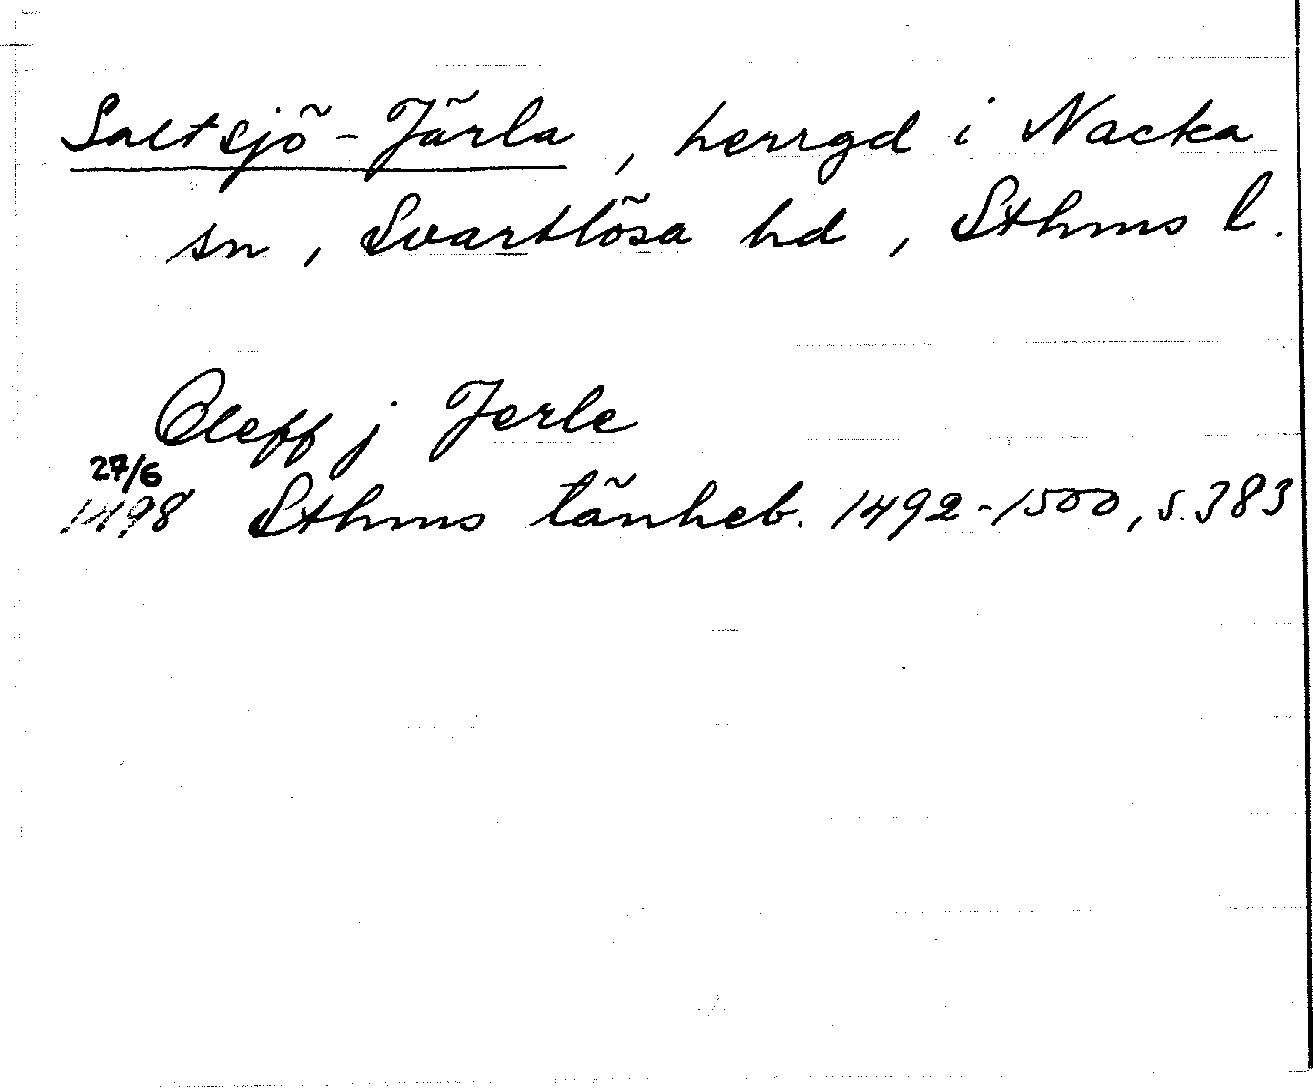 Saltsjö-Järla, herrgd i Nacka
sn, Svartlösa hd, Sthms l.
Oleff j Jerle
27/6
1498 Sthms tänkeb. 1492-1500, s. 383